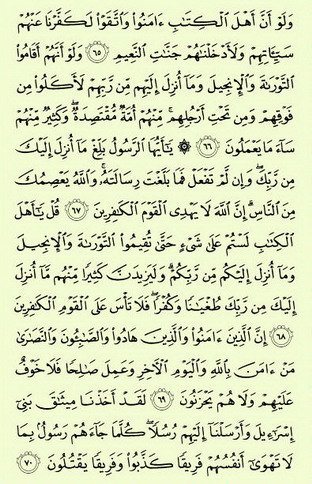 وَلَوْ أَنَّ أَهْلَ ٱلْكِتَٰبِ ءَامَنُوا۟ وَٱتَّقَوْا۟ لَكَفَّرْنَا عَنْهُمْ
سَيِّـَٔاتِهِمْ وَلَأَدْخَلْنَٰهُمْ جَنَّٰتِ ٱلنَّعِيمِ ٦٥ وَلَوْ أَنَّهُمْ أَقَامُوا۟
ٱلتَّوْرَىٰةَ وَٱلْإِنجِيلَ وَمَآ أُنزِلَ إِلَيْهِم مِّن رَّبِّهِمْ لَأَكَلُوا۟ مِن
فَوْقِهِمْ وَمِن تَحْتِ أَرْجُلِهِم ۚ مِّنْهُمْ أُمَّةٌ مُّقْتَصِدَةٌ ۖ وَكَثِيرٌ مِّنْهُمْ
سَآءَ مَا يَعْمَلُونَ ٦٦ ۞ يَٰٓأَيُّهَا ٱلرَّسُولُ بَلِّغْ مَآ أُنزِلَ إِلَيْكَ
مِن رَّبِّكَ ۖ وَإِن لَّمْ تَفْعَلْ فَمَا بَلَّغْتَ رِسَالَتَهُۥ ۚ وَٱللَّهُ يَعْصِمُكَ
مِنَ ٱلنَّاسِ ۗ إِنَّ ٱللَّهَ لَا يَهْدِى ٱلْقَوْمَ ٱلْكَٰفِرِينَ ٦٧ قُلْ يَٰٓأَهْلَ
ٱلْكِتَٰبِ لَسْتُمْ عَلَىٰ شَىْءٍ حَتَّىٰ تُقِيمُوا۟ ٱلتَّوْرَىٰةَ وَٱلْإِنجِيلَ
وَمَآ أُنزِلَ إِلَيْكُم مِّن رَّبِّكُمْ ۗ وَلَيَزِيدَنَّ كَثِيرًا مِّنْهُم مَّآ أُنزِلَ
إِلَيْكَ مِن رَّبِّكَ طُغْيَٰنًا وَكُفْرًا ۖ فَلَا تَأْسَ عَلَى ٱلْقَوْمِ ٱلْكَٰفِرِينَ
٦٨ إِنَّ ٱلَّذِينَ ءَامَنُوا۟ وَٱلَّذِينَ هَادُوا۟ وَٱلصَّٰبِـُٔونَ وَٱلنَّصَٰرَىٰ
مَنْ ءَامَنَ بِٱللَّهِ وَٱلْيَوْمِ ٱلْءَاخِرِ وَعَمِلَ صَٰلِحًا فَلَا خَوْفٌ
عَلَيْهِمْ وَلَا هُمْ يَحْزَنُونَ ٦٩ لَقَدْ أَخَذْنَا مِيثَٰقَ بَنِىٓ
إِسْرَٰٓءِيلَ وَأَرْسَلْنَآ إِلَيْهِمْ رُسُلًا ۖ كُلَّمَا جَآءَهُمْ رَسُولٌۢ بِمَا
لَا تَهْوَىٰٓ أَنفُسُهُمْ فَرِيقًا كَذَّبُوا۟ وَفَرِيقًا يَقْتُلُونَ ٧٠